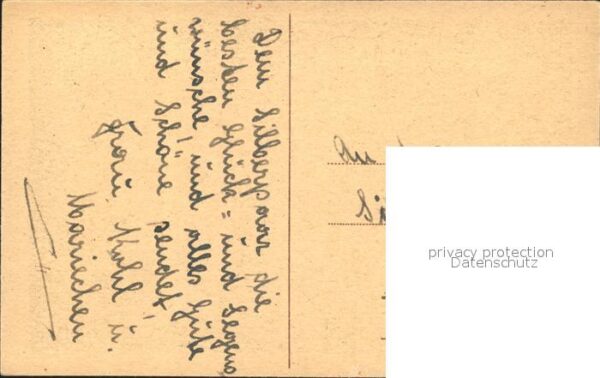 Dem Silberpaar die
besten Glück= und Segens
wünsche und alles Gute
und Schöne sendet
Frau Kohl u.
Mariechen
An
Si
privacy protection
Datenschutz